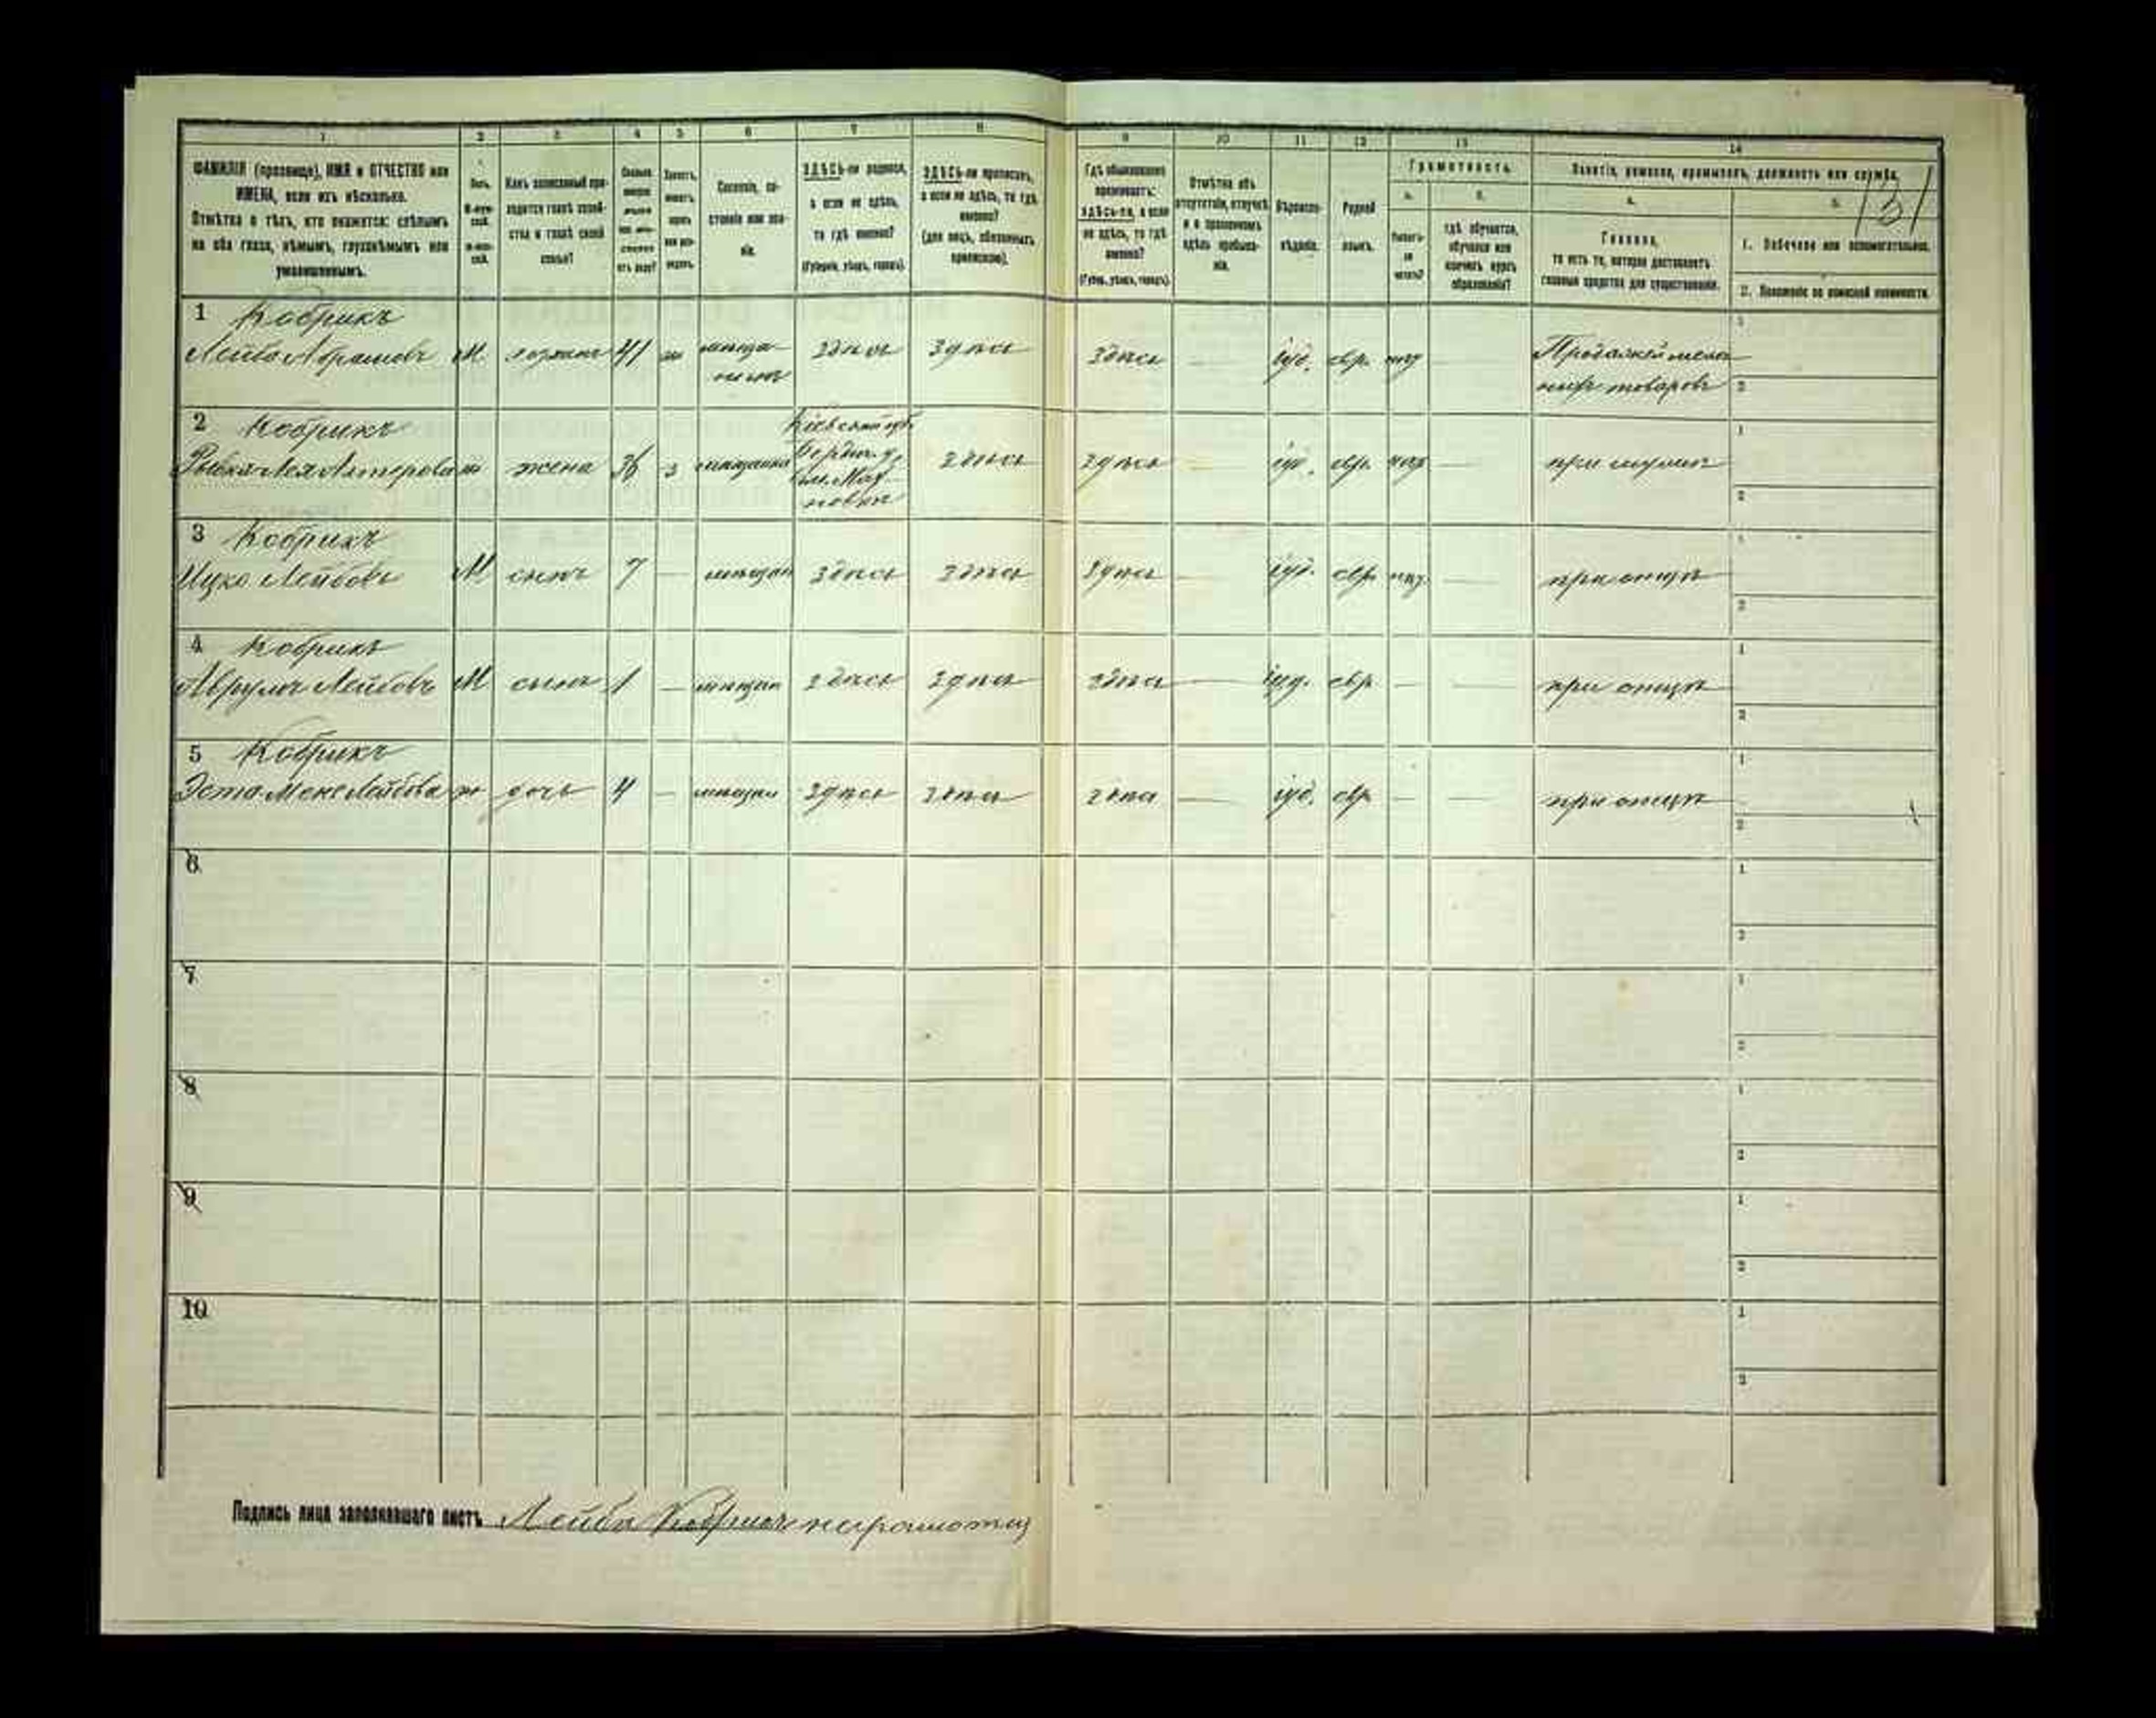 1 2 3 4 5 6 7 8 9 10 11 12 13 14
ФАМИЛІЯ (прозвище), ИМЯ и ОТЧЕСТВО или
ИМЕНА, если ихъ нѣсколько.
Отмѣтка о тѣхъ, кто окажется: слѣпымъ
на оба глаза, нѣмымъ, глухонѣмымъ или
умалишеннымъ.
Полъ.
Какъ записанный при-
ходится главѣ хозяй-
ства и главѣ своей
семьи?
Сословіе, со-
стояніе или зва-
ніе.
ЗДѢСЬ-ли родился,
а если не здѣсь,
то гдѣ именно?
(Губернія, уѣздъ, городъ).
ЗДѢСЬ-ли приписанъ,
а если не здѣсь, то гдѣ
именно?
(для лицъ, обязанныхъ
припискою).
Гдѣ обыкновенно
проживаетъ:
здѣсь-ли, а если
не здѣсь, то гдѣ
именно?
(Губ., уѣздъ, городъ).
Отмѣтка объ
отсутствіи, отлучкѣ
и о временномъ
здѣсь пребыва-
ніи.
Вѣроиспо-
вѣданіе.
Родной
языкъ.
Грамотность.
а. б.
Умѣетъ-
ли
читать?
гдѣ обучается,
обучался или
кончилъ курсъ
образованія?
Занятіе, ремесло, промыселъ, должность или служба.
131
а. б.
Главное,
то есть то, которое доставляетъ
главныя средства для существованія.
1. Побочное или вспомогательное.
2. Положеніе по воинской повинности.
1 Кобрикъ
Лейба Абрамовъ М хозяинъ 41 мѣща- здѣсь здѣсь здѣсь — іуд. евр. нѣт — Продажей мело
нинъ
товаровъ
1
2
2 Кобрикъ
жена 36 з мѣщанка здѣсь здѣсь — іуд. евр. нѣт — при мужѣ
Кіевской губ.
Бердич. у.
новки
1
2
3 Кобрикъ
Ицко Лейбовъ М сынъ 7 — мѣщан здѣсь здѣсь здѣсь — іуд. евр. нѣт. — при отцѣ
1
2
4 Кобрикъ
Аврумъ Лейбовъ М сынъ 1 — мѣщан здѣсь здѣсь здѣсь — іуд. евр. — — при отцѣ
1
2
5 Кобрикъ
Лейбова ж дочь 4 — здѣсь здѣсь здѣсь — іуд. евр. — — при отцѣ
1
2
6
1
2
7
1
2
8
1
2
9
1
2
10
1
2
Подпись лица заполнявшаго листъ Лейба Кобрикъ неграмотный